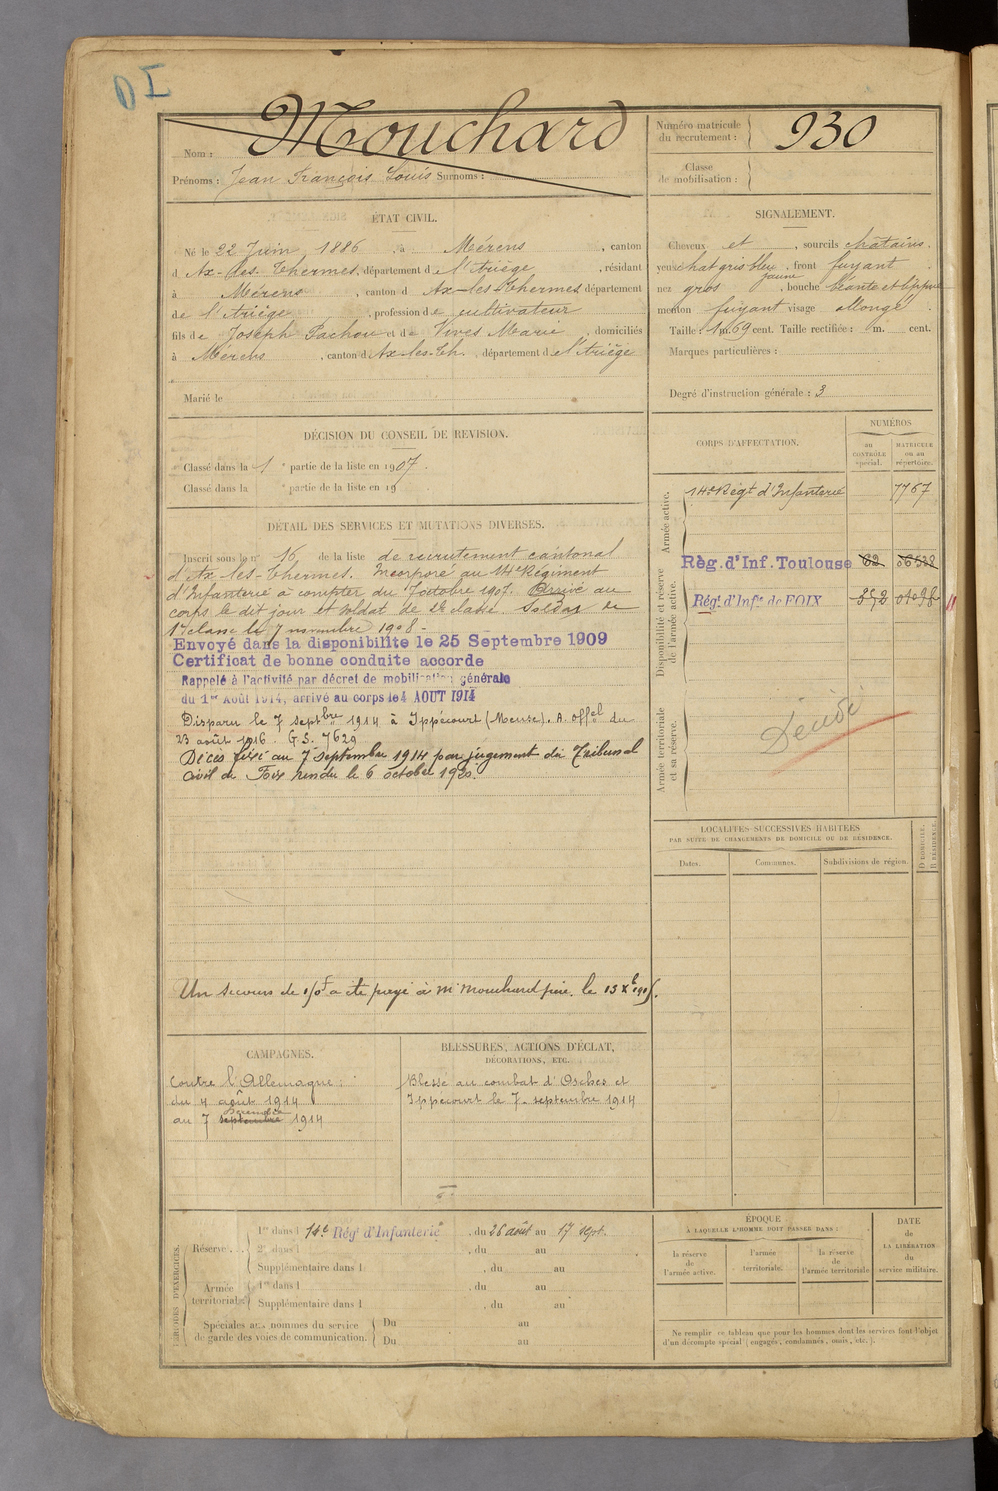 I D
Nom : Mouchard
Prénoms : Jean François Louis Surnoms :
Numéro matricule du recrutement : 930
Classe de mobilisation :
ÉTAT CIVIL.
Né le 22 Juin 1886, à Mérens, canton
d'Ax-les-Thermes, département de l'Ariège, résidant
à Mérens, canton d'Ax-les-Thermes département
de l'Ariège, profession de cultivateur
fils de Joseph Pachou et de Vives Marie, domiciliés
à Mérens, canton d'Ax-les-Th., département de l'Ariège
Marié le
SIGNALEMENT.
Cheveux et , sourcils châtains.
yeux chat gris bleu jaune, front fuyant
nez gros, bouche béante et lippue
menton fuyant visage allongé
Taille : 1 m. 69 cent. Taille rectifiée : m. cent.
Marques particulières :
Degré d'instruction générale : 3
DÉCISION DU CONSEIL DE REVISION.
Classé dans la 1 e partie de la liste en 1907.
Classé dans la e partie de la liste en 19
DÉTAIL DES SERVICES ET MUTATIONS DIVERSES.
Inscrit sous le n° 16 de la liste de recrutement cantonal
d'Ax-les-Thermes. Incorporé au 14e Régiment
d'Infanterie à compter du 7 octobre 1907. Arrivé au
corps le dit jour et soldat de 2e classe. Soldat de
1e classe le 7 novembre 1908.-
Envoyé dans la disponibilite le 25 Septembre 1909
Certificat de bonne conduite accorde
Rappelé à l'activité par décret de mobilisation générale
du 1er Août 1914, arrivé au corps le 4 AOUT 1914
Disparu le 7 septbre 1914 à Ippécourt (Meuse). A. offel du
23 août 1916. G.S. 7629
Décès fixé au 7 septembre 1914 par jugement du Tribunal
civil de Foix rendu le 6 octobre 1920.
Un secours de 150f a été payé à Mr Mouchard père. le 13 Xb 1915.
CORPS D'AFFECTATION.
NUMÉROS
au CONTRÔLE spécial.
MATRICULE ou au répertoire.
Armée active.
14e Régt d'Infanterie 7767
Disponibilité et réserve de l'armée active.
Règ. d'Inf. Toulouse 62 06538
Régt d'Infie de FOIX 352 04098
Armée territoriale et sa réserve.
Décédé
LOCALITÉS SUCCESSIVES HABITÉES
PAR SUITE DE CHANGEMENTS DE DOMICILE OU DE RÉSIDENCE.
Dates. Communes. Subdivisions de région.
D DOMICILE. R RÉSIDENCE.
CAMPAGNES.
Contre l'Allemagne :
du 4 août 1914
au 7 septembre 1914
BLESSURES, ACTIONS D'ÉCLAT,
DÉCORATIONS, ETC.
Blessé au combat d'Osches et
Ippécourt le 7 septembre 1914
PÉRIODES D'EXERCICES.
Réserve.
1re dans l 14e Régt d'Infanterie, du 26 août au 17 sept.
2e dans l , du au
Supplémentaire dans l , du au
Armée territoriale.
1re dans l , du au
Supplémentaire dans l , du au
Spéciales aux hommes du service de garde des voies de communication.
Du au
Du au
ÉPOQUE
À LAQUELLE L'HOMME DOIT PASSER DANS :
la réserve de l'armée active.
l'armée territoriale.
la réserve de l'armée territoriale
DATE DE LA LIBÉRATION du service militaire.
Ne remplir ce tableau que pour les hommes dont les services font l'objet
d'un décompte spécial (engagés, condamnés, omis, etc.).